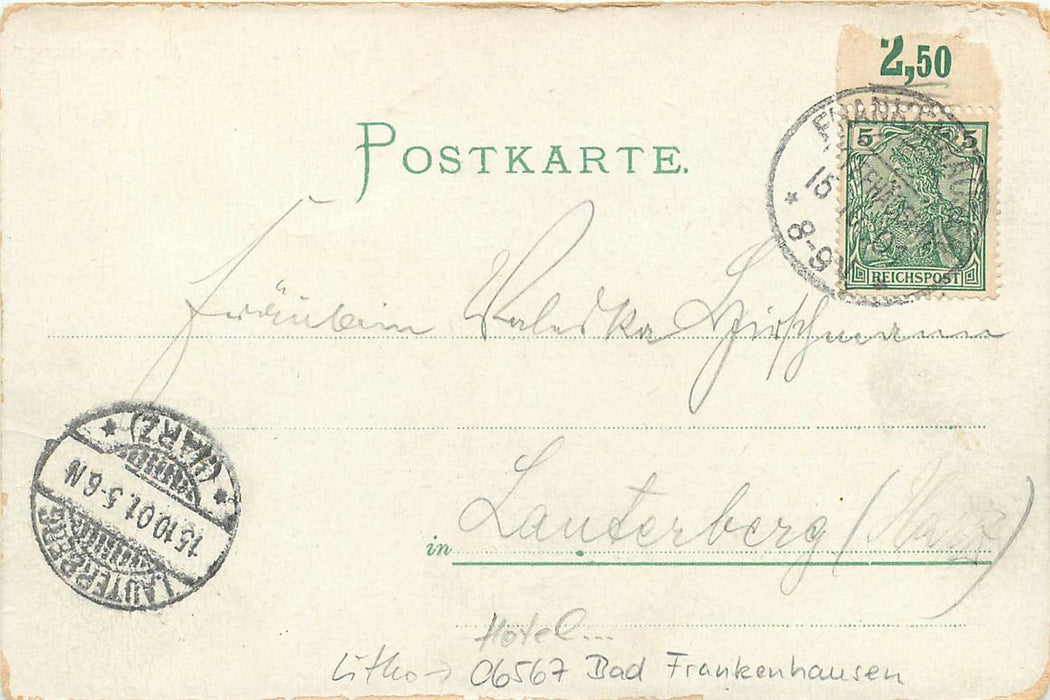 2,50
POSTKARTE.
5 5
REICHSPOST
15
8-9V
Fräulein Waleska Hirschmann
in Lauterberg (Harz)
LAUTERBERG
15.10.01.5-6N
(HARZ)
Hotel...
Litho → 06567 Bad Frankenhausen